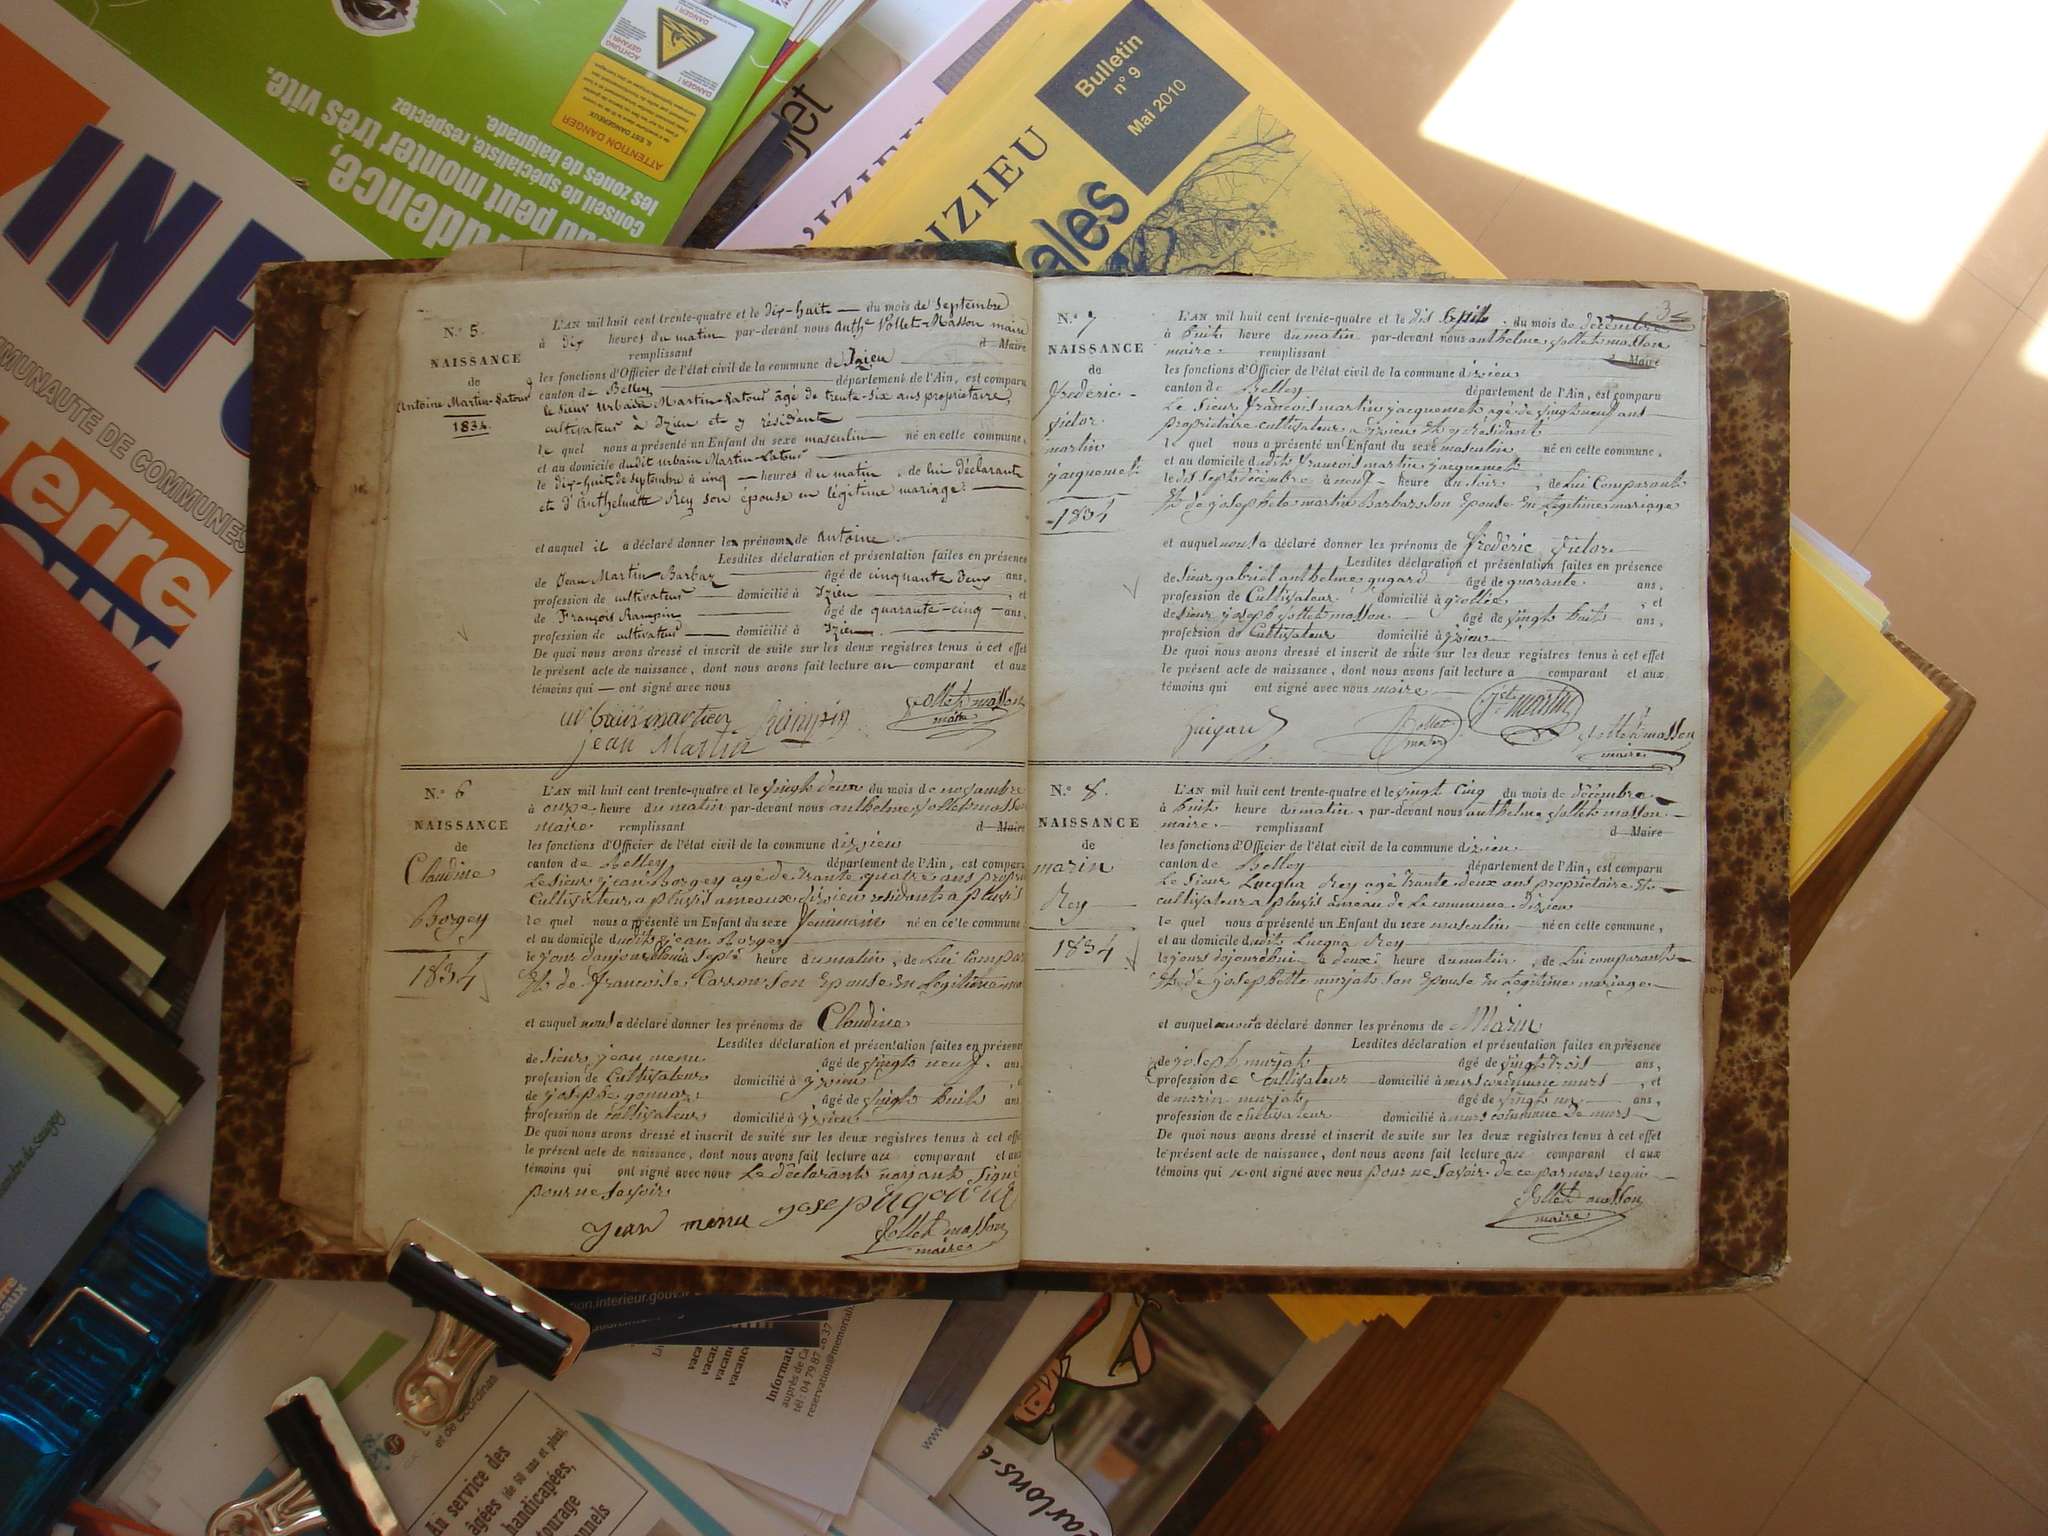 INFO
MMUNAUTE DE COMMUNES
erre
rudence,
eau peut monter très vite.
conseil de spécialiste, respectez
les zones de baignade.
ATTENTION DANGER
DANGER !
ACHTUNG
GEFAHR !
Bulletin
n° 9
Mai 2010
D'IZIEU
IZIEU
ales
N.° 5.
NAISSANCE
de
Antoine Martin-Latour
1834.
L'AN mil huit cent trente-quatre et le dix-huit du mois de Septembre
à dix heures du matin par-devant nous Anth.e Vollet-Masson maire
remplissant d Maire
les fonctions d'Officier de l'état civil de la commune de Izieu
canton de Belley département de l'Ain, est comparu
le sieur Urbain Martin-Latour âgé de trente-six ans propriétaire,
cultivateur à Izieu et y résidant
le quel nous a présenté un Enfant du sexe masculin né en cette commune,
et au domicile dudit urbain Martin-Latour
le dix-huit de septembre à cinq heures du matin, de lui déclarant
et d'Anthelmette Rey son épouse en légitime mariage.
et auquel il a déclaré donner les prénoms de Antoine.
Lesdites déclaration et présentation faites en présence
de Jean Martin Barbaz âgé de cinquante deux ans,
profession de cultivateur domicilié à Izieu, et
de François Rampin âgé de quarante-cinq ans,
profession de cultivateur domicilié à Izieu.
De quoi nous avons dressé et inscrit de suite sur les deux registres tenus à cet effet
le présent acte de naissance, dont nous avons fait lecture au comparant et aux
témoins qui ont signé avec nous
urbain martin Rampin Vollet masson
jean Martin maire
N.° 6
NAISSANCE
de
Claudine
Borgey
1834
L'AN mil huit cent trente-quatre et le vingt deux du mois de novambre
à onze heure du matin par-devant nous anthelme vollet masson
maire remplissant d Maire
les fonctions d'Officier de l'état civil de la commune dizieu
canton de Belley département de l'Ain, est comparu
Le sieur jean Borgey agé de trante quatre ans propri
Cultivateur a plusis ameaux dizieu residant a plusis
le quel nous a présenté un Enfant du sexe feminin né en cette commune
et au domicile dudit jean Borgey
le jour d'aujourdhui a sept heure du matin, de Lui compar
Et de francoise Carron son Epouse En Legitime ma
et auquel nous a déclaré donner les prénoms de Claudine
Lesdites déclaration et présentation faites en présence
de Sieur jean menu âgé de vingt neuf ans
profession de Cultivateur domicilié à yzieu
de josephe gonnar âgé de vingt huit ans
profession de cultivateur domicilié à yzieu
De quoi nous avons dressé et inscrit de suite sur les deux registres tenus à cet effe
le présent acte de naissance, dont nous avons fait lecture au comparant et aux
témoins qui ont signé avec nous Le déclarant nayant signé
pour ne savoir
jean menu Vollet masson
maire
3
N.° 7
NAISSANCE
de
frédéric
victor
martin
jacquemet
1834
L'AN mil huit cent trente-quatre et le dit septe du mois de décembre
à huit heure du matin par-devant nous anthelme vollet masson
maire remplissant d Maire
les fonctions d'Officier de l'état civil de la commune dizieu
canton de Belley département de l'Ain, est comparu
Le Sieur francois martin jacquemet agé de vingt neuf ans
propriétaire cultivateur a izieu Et y residant
le quel nous a présenté un Enfant du sexe masculin né en cette commune,
et au domicile dudit francois martin jacquemet
le dit sept décembre à neuf heure du soir, de Lui Comparant
Et de josephete martin Barbas son Epouse En Legitime mariage
et auquel nous a déclaré donner les prénoms de frederic victor
Lesdites déclaration et présentation faites en présence
de Sieur gabriel anthelme gugard âgé de quarante ans,
profession de Cultivateur domicilié à grollée, et
de Sieur joseph vollet masson âgé de vingt huit ans,
profession de Cultivateur domicilié à yzieu
De quoi nous avons dressé et inscrit de suite sur les deux registres tenus à cet effet
le présent acte de naissance, dont nous avons fait lecture a comparant et aux
témoins qui ont signé avec nous maire
Vollet martin Vollet masson
maire
N.° 8.
NAISSANCE
de
marin
Rey
1834
L'AN mil huit cent trente-quatre et le vingt cinq du mois de décembre
à huit heure du matin, par-devant nous anthelme vollet masson
maire remplissant d Maire
les fonctions d'Officier de l'état civil de la commune dizieu
canton de Belley département de l'Ain, est comparu
Le Sieur Lucqua Rey agé trante deux ans propriétaire Et
cultivateur a plusis ameau de la commune dizieu
le quel nous a présenté un Enfant du sexe masculin né en cette commune,
et au domicile dudit Lucqua Rey
le jours dojourdhui à deux heure du matin, de Lui comparant
Et de josephette murjat son Epouse En Legitime mariage
et auquel nous a déclaré donner les prénoms de Marin
Lesdites déclaration et présentation faites en présence
de joseph murjat âgé de vingt trois ans,
profession de cultivateur domicilié à murs commune murs, et
de marin murjat âgé de vingt un ans,
profession de cultivateur domicilié à murs commune de murs
De quoi nous avons dressé et inscrit de suite sur les deux registres tenus à cet effet
le présent acte de naissance, dont nous avons fait lecture au comparant et aux
témoins qui n ont signé avec nous pour ne savoir de ce par nous requi
Vollet masson
maire
interieur.gouv
vacan
vacance
Informati
auprès de Ca
tél : 04 79 87
reservation@memorial
www.
Au service des
âgées (de 60 ans et plus),
handicapées,
tourage
nnels
arlons-e